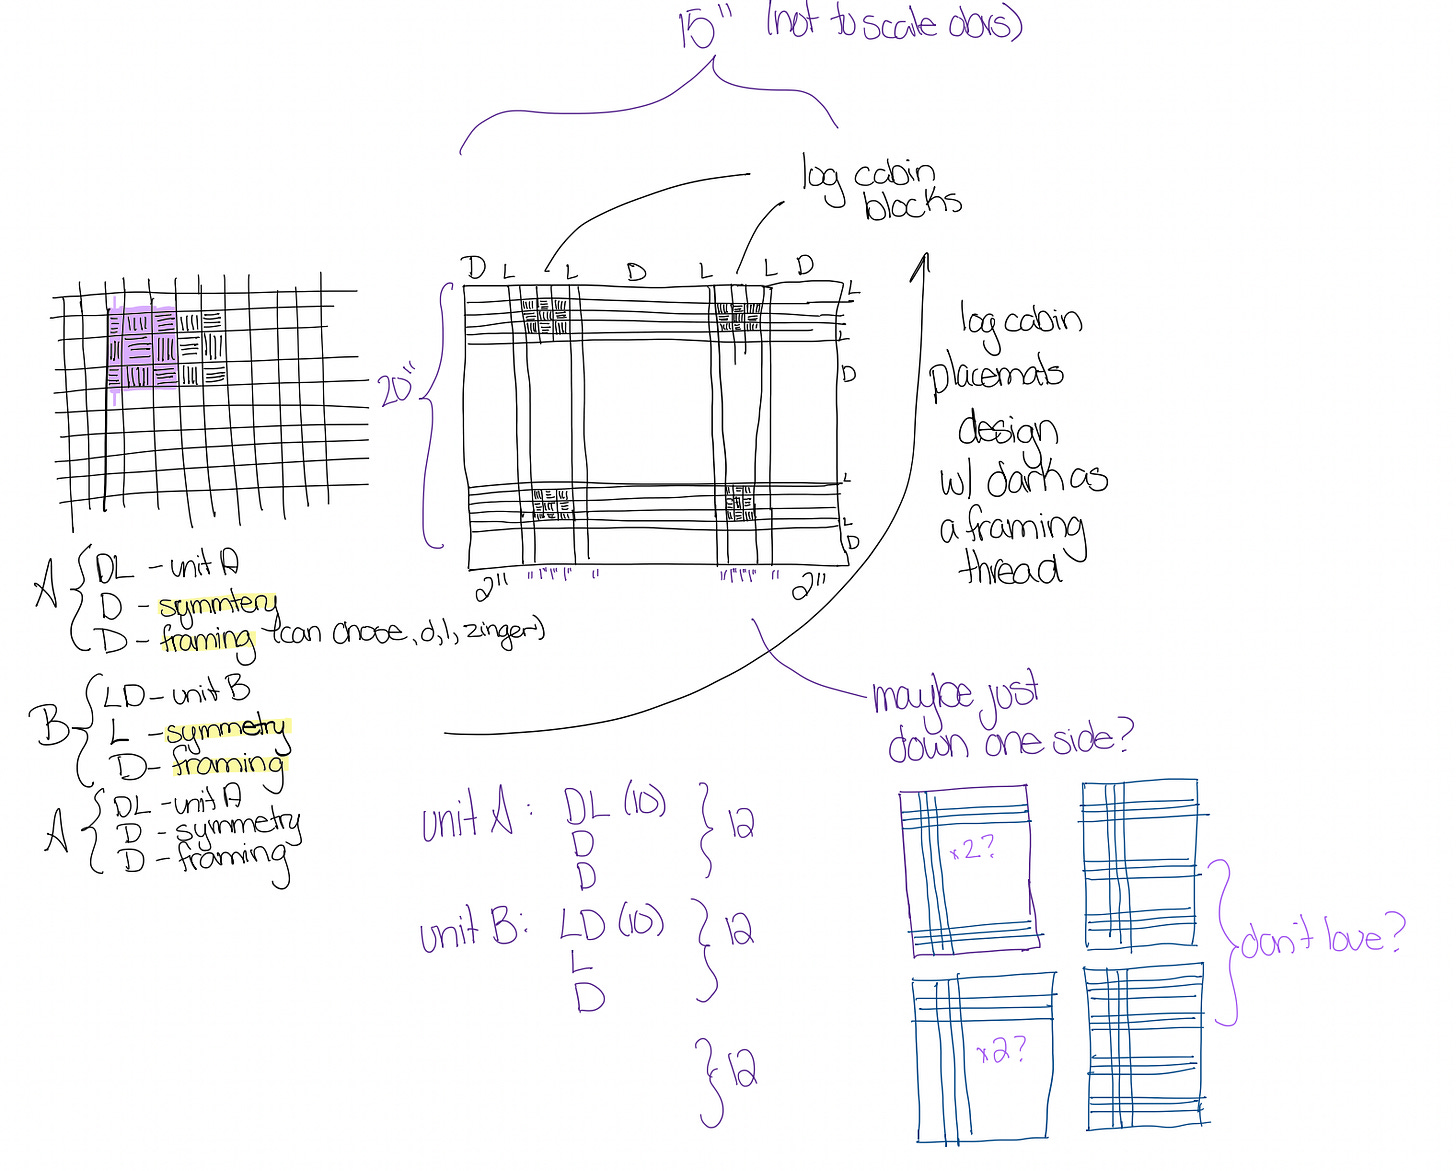 15" (not to scale obvs)
log cabin
blocks
D L L D L L D
L
L
D
L
L
D
20"
2" " " " " " " " " " 2"
log cabin
placemats
design
w/ dark as
a framing
thread
A { DL - unit A
D - symmtery
D - framing (can chose, d, l, zinger)
B { LD - unit B
L - symmetry
D - framing
A { DL - unit A
D - symmetry
D - framing
maybe just
down one side?
unit A: DL (10) } 12
D
D
unit B: LD (10) } 12
L
D
} 12
x2?
x2?
don't love?